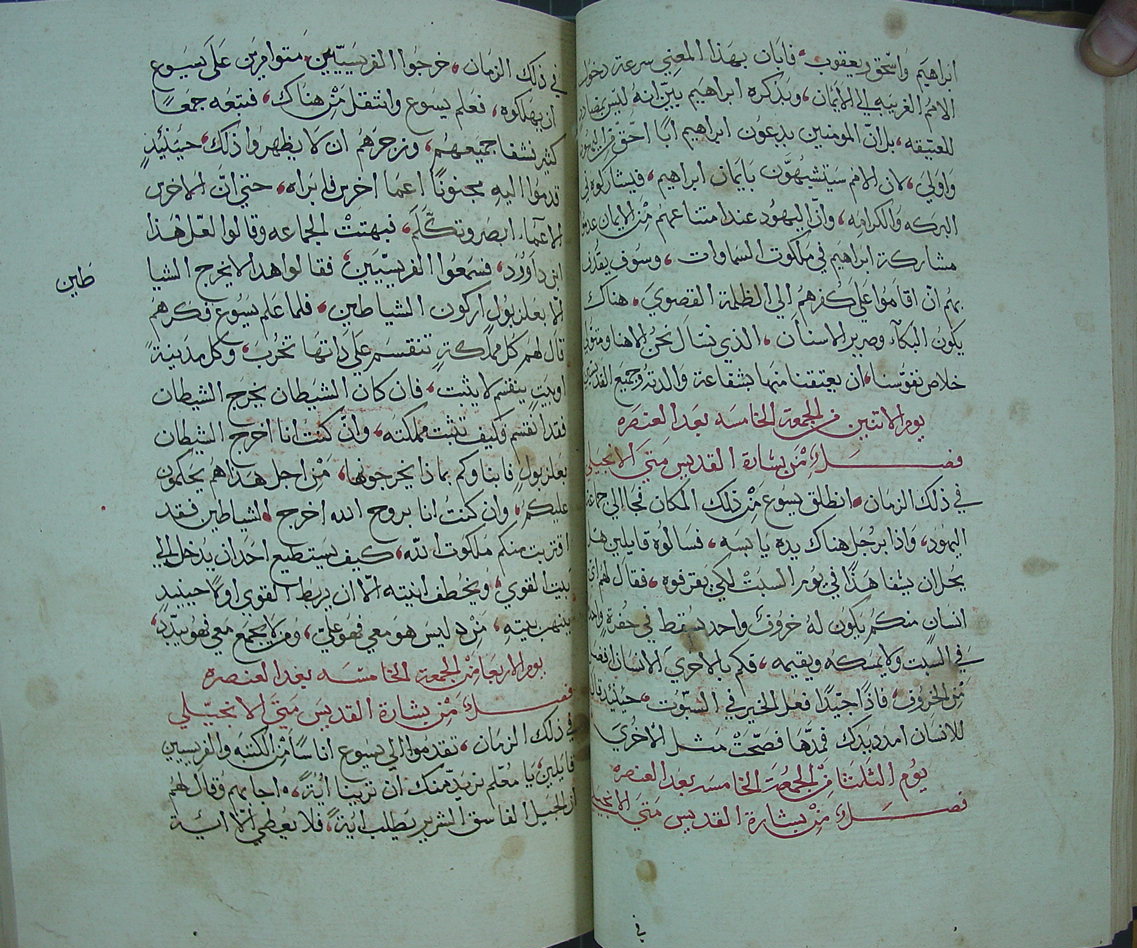 ابراهيم واسحق ويعقوب فابان بهذا المعني سرعة دخول
الامم الغريبه في الايمان وبذكره ابراهيم بين انه ليس بمضاد
للعتيقه بل ان المومنين يدعون ابراهيم ابا احق من اليهود
واولي لان الامم سيتشبهون بايمان ابراهيم فيشاركوه في
البركه والكرامه وان اليهود عند امتناعهم من الايمان عدموا
مشاركة ابراهيم في ملكوت السماوات وسوف يقذف
بهم ان اقاموا علي كفرهم الي الظلمة القصوي هناك
يكون البكاء وصرير الاسنان الذي نسال نحن الاهنا ومتولي
خلاص نفوسنا ان يعتقنا منها بشفاعة والدته وجميع القديسين
يوم الاتنين من الجمعة الخامسه بعد العنصره
فصل من بشارة القديس متي الانجيلي
في ذلك الزمان انطلق يسوع من ذلك المكان فجا الي جماعة
اليهود واذا برجل هناك يده يابسه فسالوه قايلين هل
يحل ان يشفا هذا في يوم السبت لكي يقرفوه فقال لهم اي
انسان منكم يكون له خروف واحد يسقط في حفرة واحده
في السبت ولا يمسكه ويقيمه فكم بالاحري الانسان افضل
من الخروف فاذا جيدا فعل الخير في السبوت حينيذ قال
للانسان امدد يدك فمدها فصحت مثل الاخري
يوم الثلثا من الجمعة الخامسه بعد العنصره
فصل من بشارة القديس متي الانجيلي
في
في ذلك الزمان خرجوا الفريسيين متوامرين علي يسوع
ان يهلكوه فعلم يسوع وانتقل من هناك فتبعه جمعا
كثير فشفا جميعهم وزجرهم ان لا يظهروا ذلك حينيذ
قدموا اليه مجنونا اعما اخرس فابراه حتي ان الاخرس
الاعماء ابصر وتكلم فبهتت الجماعه وقالوا لعل هذا
ابن داوود فسمعوا الفريسيين فقالوا هذا لا يخرج الشيا
طين
الا ببعلزبول اركون الشياطين فلما علم يسوع فكرهم
قال لهم كل مملكة تنقسم علي ذاتها تخرب وكل مدينة
او بيت ينقسم لا يثبت فان كان الشيطان يخرج الشيطان
فقد انقسم وكيف تثبت مملكته وان كنت انا اخرج الشيطان
ببعلزبول فابناوكم بماذا يخرجوها من اجل هذا هم يحكمون
عليكم وان كنت انا بروح الله اخرج الشياطين فقد
اقتربت منكم ملكوت الله كيف يستطيع احد ان يدخل الي
بيت القوي ويخطف انيته الا ان يربط القوي اولا حينيذ
ينهب بيته من ليس هو معي فهو علي ومن لا يجمع معي فهو يبدد
يوم الاربعا من الجمعة الخامسه بعد العنصره
فصل من بشارة القديس متي الانجيلي
في ذلك الزمان تقدموا الي يسوع اناسا من الكتبه والفريسيين
قايلين يا معلم نريد منك ان ترينا اية اجابهم وقال لهم
ان الجيل الفاسق الشرير يطلب اية فلا يعطي الا اية